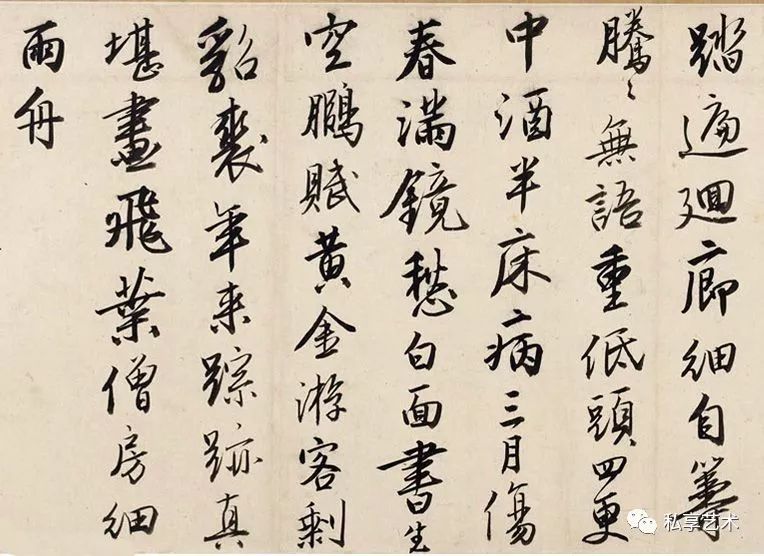 踏遍廻廊細自籌
騰〻無語重低頭四更
中酒半床病三月傷
春滿鏡愁白面書生
空鵩賦黃金游客剩
貂裘年來踪跡真
堪畫飛葉僧房細
雨舟
私享艺术